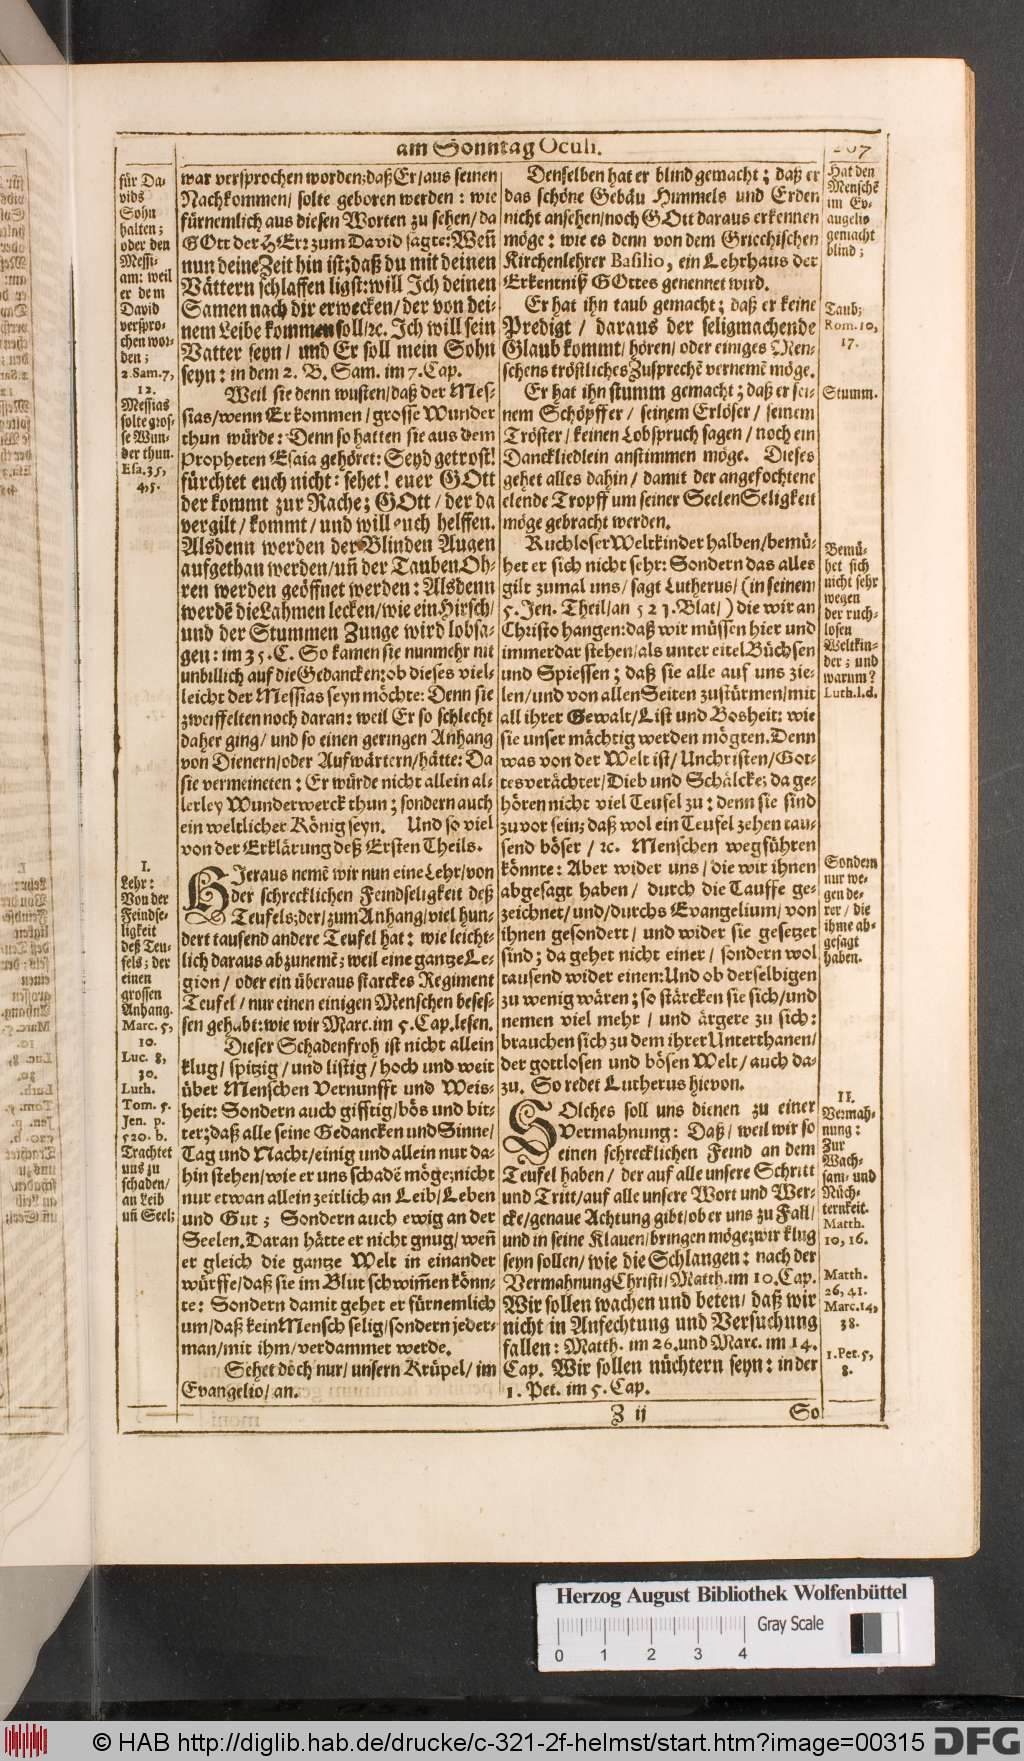 am Sonntag Oculi.
für Da-
vids
Sohn
halten;
oder den
Messi-
am: weil
er dem
David
verspro-
chen wor-
den;
2. Sam. 7,
12.
Messias
solte gros-
se Wun-
der thun.
Esa. 35,
4, 5.
I.
Lehr:
Von der
Feindse-
ligkeit
deß Teu-
fels; der
einen
grossen
Anhang.
Marc. 5,
10.
Luc. 8,
30.
Luth.
Tom. 5.
Jen. p.
520. b.
Trachtet
uns zu
schaden/
an Leib
uñ Seel;
war versprochen worden; daß Er/ aus seinen
Nachkommen/ solte geboren werden: wie
fürnemlich aus diesen Worten zu sehen/ da
GOtt der HErr zum David sagte: Weñ
nun deine Zeit hin ist; daß du mit deinen
Vättern schlaffen ligst: will Ich deinen
Samen nach dir erwecken/ der von dei-
nem Leibe kommen soll/ ꝛc. Ich will sein
Vatter seyn/ und Er soll mein Sohn
seyn: in dem 2. B. Sam. im 7. Cap.
Weil sie denn wusten/ daß der Mes-
sias/ wenn Er kommen/ grosse Wunder
thun würde: Denn so hatten sie aus dem
Propheten Esaia gehöret: Seyd getrost!
fürchtet euch nicht: sehet! euer GOtt
der kommt zur Rache; GOtt/ der da
vergilt/ kommt/ und will euch helffen.
Alsdenn werden der Blinden Augen
aufgethan werden/ uñ der Tauben Oh-
ren werden geöffnet werden: Alsdenn
werdē die Lahmen lecken/ wie ein Hirsch/
und der Stummen Zunge wird lobsa-
gen: im 35. C. So kamen sie nunmehr nit
unbillich auf die Gedancken; ob dieses viel-
leicht der Messias seyn möchte: Denn sie
zweiffelten noch daran: weil Er so schlecht
daher ging/ und so einen geringen Anhang
von Dienern/ oder Aufwärtern/ hätte: Da
sie vermeineten: Er würde nicht allein al-
lerley Wunderwerck thun; sondern auch
ein weltlicher König seyn. Und so viel
von der Erklärung deß Ersten Theils.
HIeraus nemē wir nun eine Lehr/ von
der schrecklichen Feindseligkeit deß
Teufels; der/ zum Anhang/ viel hun-
dert tausend andere Teufel hat: wie leicht-
lich daraus abzunemē; weil eine gantze Le-
gion/ oder ein überaus starckes Regiment
Teufel/ nur einen einigen Menschen beses-
sen gehabt: wie wir Marc. im 5. Cap. lesen.
Dieser Schadenfroh ist nicht allein
klug/ spitzig/ und listig/ hoch und weit
über Menschen Vernunfft und Weis-
heit: Sondern auch gifftig/ bös und bit-
ter; daß alle seine Gedancken und Sinne/
Tag und Nacht/ einig und allein nur da-
hin stehen/ wie er uns schadē möge; nicht
nur etwan allein zeitlich an Leib/ Leben
und Gut; Sondern auch ewig an der
Seelen. Daran hätte er nicht gnug/ weñ
er gleich die gantze Welt in einander
würffe/ daß sie im Blut schwim̃en könn-
te: Sondern damit gehet er fürnemlich
um/ daß kein Mensch selig/ sondern jeder-
man/ mit ihm/ verdammet werde.
Sehet doch nur/ unsern Krüpel/ im
Evangelio/ an.
Denselben hat er blind gemacht; daß er
das schöne Gebäu Himmels und Erden
nicht ansehen/ noch GOtt daraus erkennen
möge: wie es denn von dem Griechischen
Kirchenlehrer Basilio, ein Lehrhaus der
Erkentniß GOttes genennet wird.
Er hat ihn taub gemacht; daß er keine
Predigt/ daraus der seligmachende
Glaub kommt/ hören/ oder einiges Men-
schens tröstliches Zusprechē vernemē möge.
Er hat ihn stumm gemacht; daß er sei-
nem Schöpffer/ seinem Erlöser/ seinem
Tröster/ keinen Lobspruch sagen/ noch ein
Danckliedlein anstimmen möge. Dieses
gehet alles dahin/ damit der angefochtene
elende Tropff um seiner Seelen Seligkeit
möge gebracht werden.
Ruchloser Weltkinder halben/ bemü-
het er sich nicht sehr: Sondern das alles
gilt zumal uns/ sagt Lutherus/ (in seinem
5. Jen. Theil/ an 521. Blat/) die wir an
Christo hangen: daß wir müssen hier und
immerdar stehen/ als unter eitel Büchsen
und Spiessen; daß sie alle auf uns zie-
len/ und von allen Seiten zustürmen/ mit
all ihrer Gewalt/ List und Bosheit: wie
sie unser mächtig werden mögten. Denn
was von der Welt ist/ Unchristen/ Got-
tesverächter/ Dieb und Schälcke; da ge-
hören nicht viel Teufel zu: denn sie sind
zuvor sein; daß wol ein Teufel zehen tau-
send böser/ ꝛc. Menschen wegführen
könnte: Aber wider uns/ die wir ihnen
abgesagt haben/ durch die Tauffe ge-
zeichnet/ und/ durchs Evangelium/ von
ihnen gesondert/ und wider sie gesetzet
sind; da gehet nicht einer/ sondern wol
tausend wider einen: Und ob derselbigen
zu wenig wären; so stärcken sie sich/ und
nemen viel mehr/ und ärgere zu sich:
brauchen sich zu dem ihrer Unterthanen/
der gottlosen und bösen Welt/ auch da-
zu. So redet Lutherus hievon.
SOlches soll uns dienen zu einer
Vermahnung: Daß/ weil wir so
einen schrecklichen Feind an dem
Teufel haben/ der auf alle unsere Schritt
und Tritt/ auf alle unsere Wort und Wer-
cke/ genaue Achtung gibt/ ob er uns zu Fall/
und in seine Klauen/ bringen möge; wir klug
seyn sollen/ wie die Schlangen: nach der
Vermahnung Christi/ Matth. im 10. Cap.
Wir sollen wachen und beten/ daß wir
nicht in Anfechtung und Versuchung
fallen: Matth. im 26. und Marc. im 14.
Cap. Wir sollen nüchtern seyn: in der
1. Pet. im 5. Cap.
Z ij
So
Hat den
Menschē
im Ev-
angelio
gemacht
blind;
Taub;
Rom. 10,
17.
Stumm.
Bemü-
het sich
nicht sehr
wegen
der ruch-
losen
Weltkin-
der; und
warum?
Luth. l. d.
Sondern
nur we-
gen de-
rer/ die
ihme ab-
gesagt
haben.
II.
Vermah-
nung:
Zur
Wach-
sam- und
Nüch-
ternkeit.
Matth.
10, 16.
Matth.
26, 41.
Marc. 14,
38.
1. Pet. 5,
8.
Herzog August Bibliothek Wolfenbüttel
Gray Scale
0 1 2 3 4
© HAB http://diglib.hab.de/drucke/c-321-2f-helmst/start.htm?image=00315
DFG